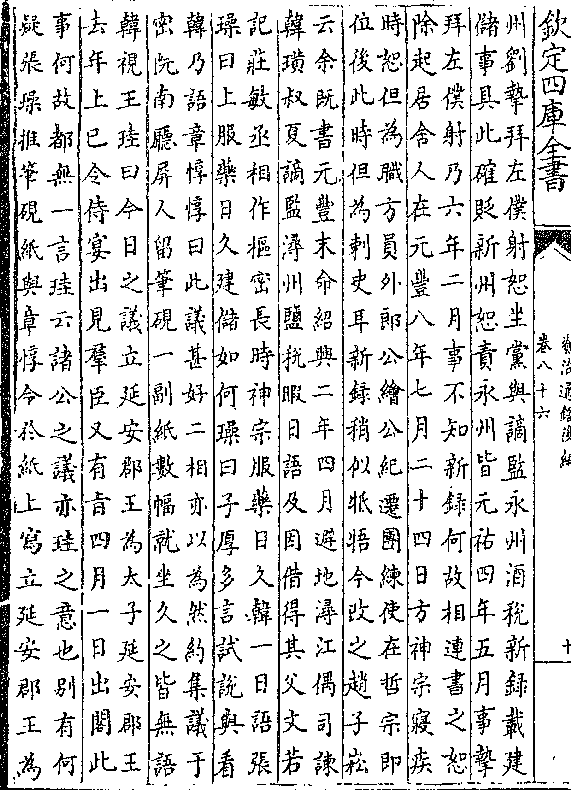 欽定四庫全書
卷八十六
州劉摯拜左僕射恕坐黨與謫監永州酒稅新録載建
儲事具此確貶新州恕責永州皆元祐四年五月事摯
拜左僕射乃六年二月事不知新録何故相連書之恕
除起居舍人在元豐八年七月二十四日方神宗寢疾
時恕但為職方員外郎公繪公紀遷團練使在哲宗即
位後此時但為刺史耳新録稍似牴牾今改之趙子崧
云余既書元豐末命紹興二年四月避地潯江偶司諫
韓璜叔夏謫監潯州鹽税暇日語及因借得其父文若
記莊敏丞相作樞密長時神宗服藥日久韓一日語張
璪曰上服藥日久建儲如何璪曰子厚多言試說與看
韓乃語章惇惇曰此議甚好二相亦以為然約集議于
密院南廳屏人留筆硯一副紙數幅就坐久之皆無語
韓視王珪曰今日之議立延安郡王為太子延安郡王
去年上已令侍宴出見羣臣又有㫖四月一日出閤此
事何故都無一言珪云諸公之議亦珪之意也别有何
疑張璪推筆硯紙與章惇令於紙上寫立延安郡王為